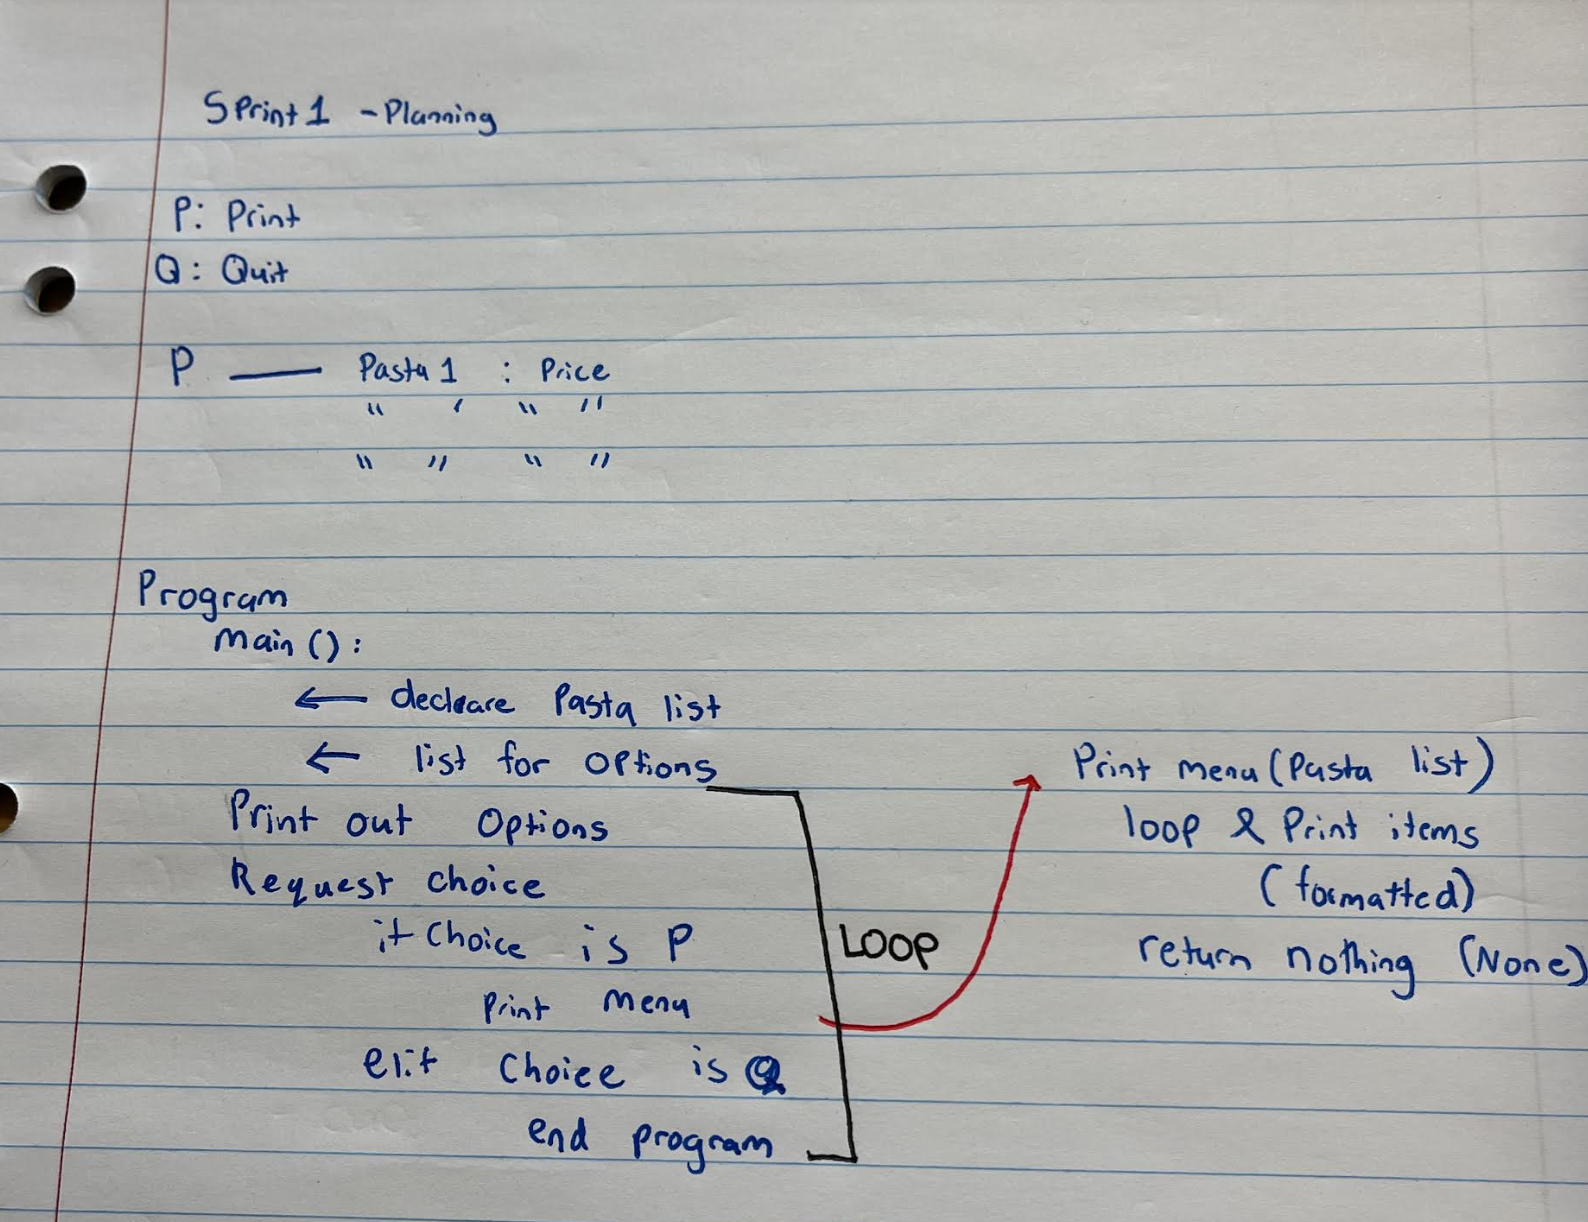 Sprint 1 - Planning
P: Print
Q: Quit
P — Pasta 1 : Price
" ' " "
" " " "
Program
main():
← decleare Pasta list
← list for options
Print out options
Request choice
if choice is P
Print menu
elif choice is Q
end program
LOOP
Print menu (Pasta list)
loop & Print items
(formatted)
return nothing (None)